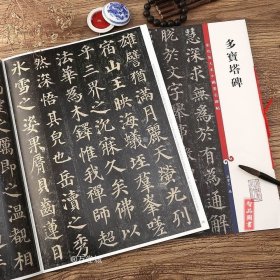 多寶塔碑
慧深求無為於有為通解
脫於文字舉
雄勝猶滿月麗天螢光列
宿山王映海蟻垤群峯嗟
乎三界之沉寂久矣佛以
法華為木鐸惟我禪師超
然深悟其皃也岳瀆之秀
冰雪之姿果脣貝齒蓮目
溫觀相